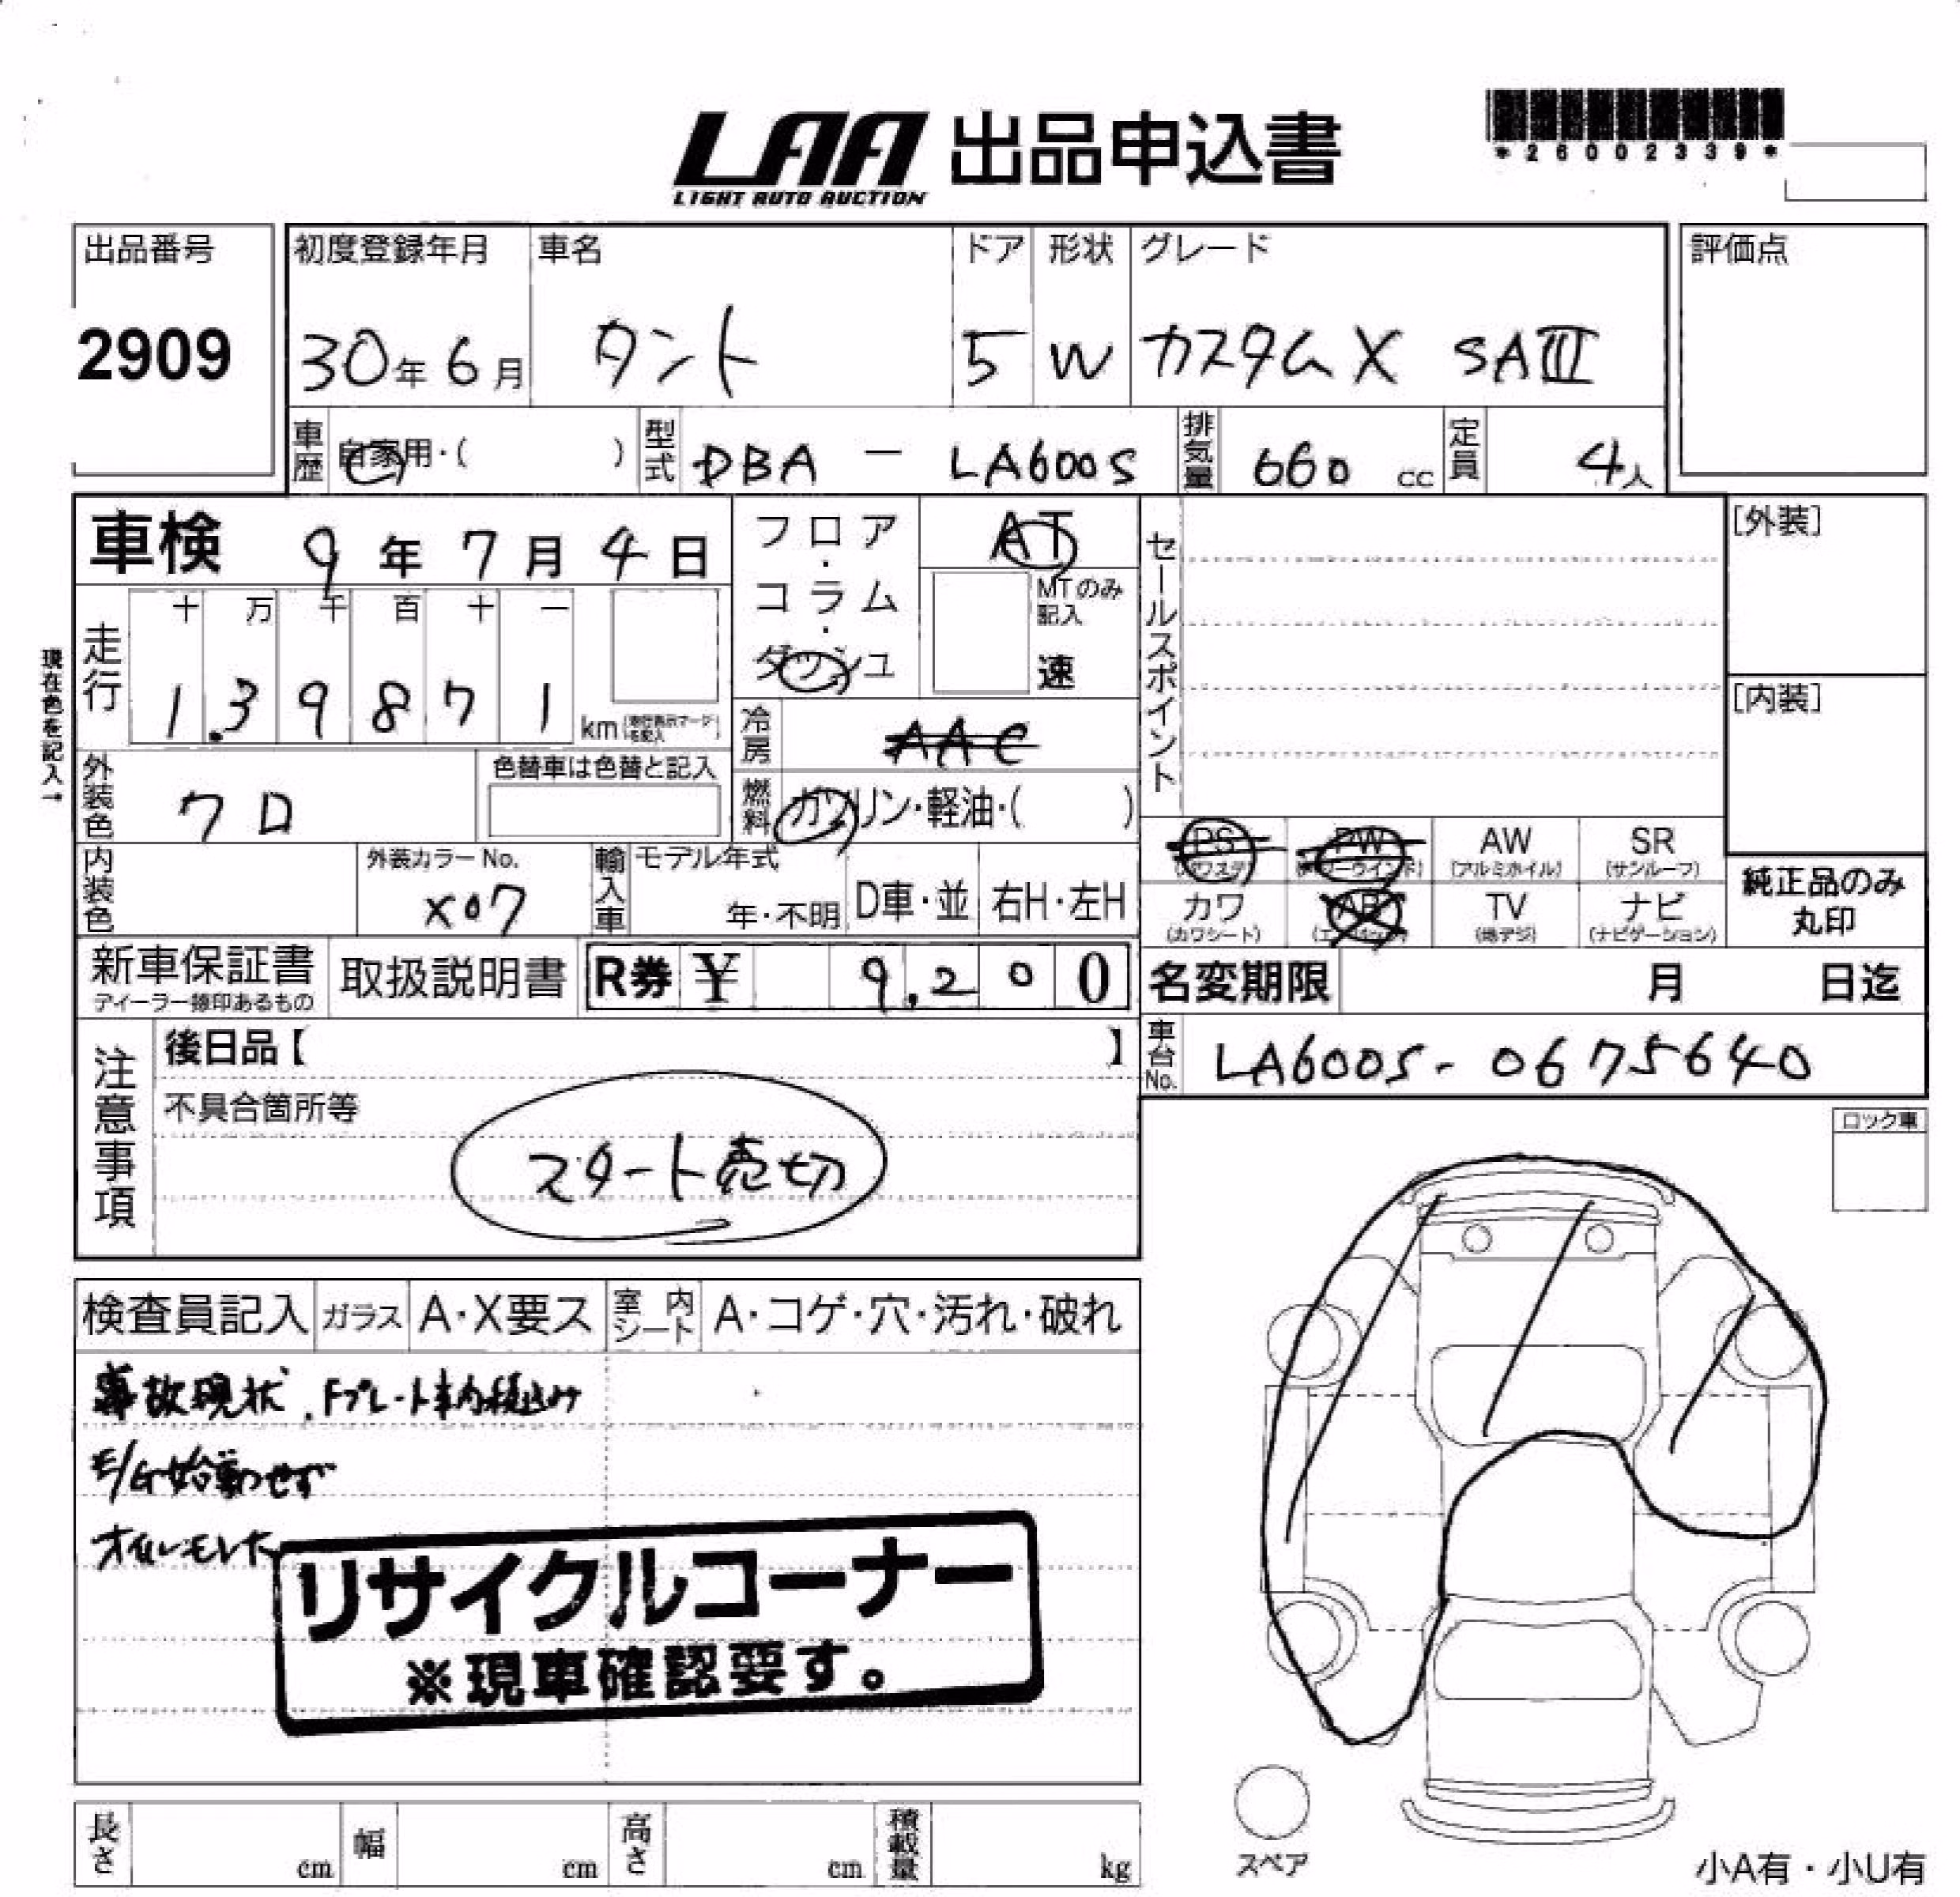 LAA 出品申込書
LIGHT AUTO AUCTION
*26002339*
出品番号
2909
初度登録年月
30年6月
車名
タント
ドア
5
形状
W
グレード
カスタムX SAIII
評価点
車歴
自家用・( )
型式
DBA - LA600S
排気量
660 cc
定員
4人
車検 9年7月4日
フロア・コラム・ダッシュ
AT
MTのみ記入
速
セールスポイント
[外装]
[内装]
現在色を記入→
走行
十 万 千 百 十 一
1.39871 km
冷房
AAC
燃料
ガソリン・軽油・( )
外装色
クロ
色替車は色替と記入
内装色
外装カラーNo.
X07
輸入車
モデル年式
年・不明
D車・並
右H・左H
PS
PW
AW
(アルミホイル)
SR
(サンルーフ)
カワ
(カワシート)
AB
TV
(地デジ)
ナビ
(ナビゲーション)
純正品のみ
丸印
新車保証書
ディーラー捺印あるもの
取扱説明書
R券 ¥ 9,200
名変期限 月 日迄
車台No.
LA600S-0675640
注意事項
後日品【 】
不具合箇所等
スタート売切
ロック車
検査員記入
ガラス
A・X要ス
室内シート
A・コゲ・穴・汚れ・破れ
事故現状、Fプレート車内積込み
E/G始動せず
オイルモレ大
リサイクルコーナー
※現車確認要す。
長さ cm
幅 cm
高さ cm
積載量 kg
スペア
小A有・小U有